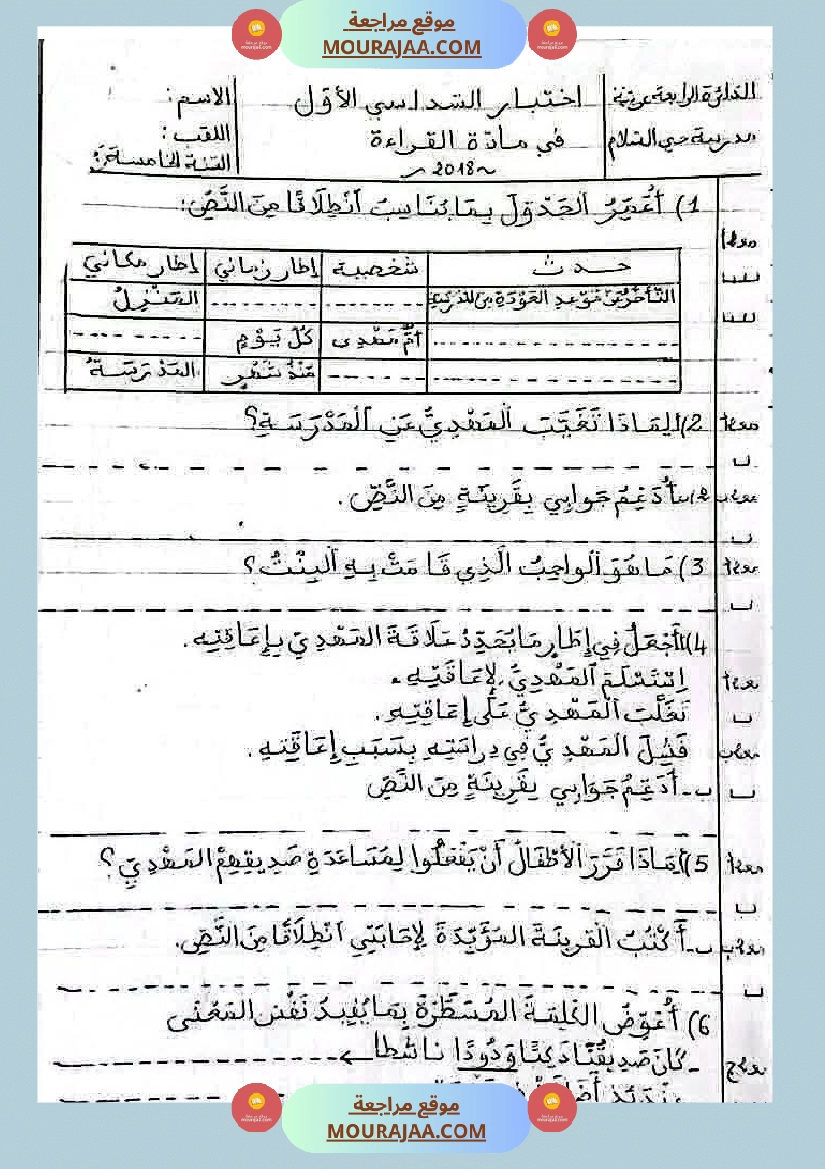 موقع مراجعة
MOURAJAA.COM
اختبار السداسي الأول
في مادّة القراءة
~ 2018 ~
الاسم:
اللقب:
السنة الخامسة
1) أُعَمِّرُ الجَدْوَلَ بِمَا يُنَاسِبُ انْطِلَاقًا مِنَ النَّصِّ:
حدث شخصية إطار زماني إطار مكاني
التَّأَخُّرُ عَنْ مَوْعِدِ العَوْدَةِ مِنَ المَدْرَسَةِ المَنْزِلُ
أُمُّ مَهْدِي كُلَّ يَوْمٍ
مُنْذُ شَهْرٍ المَدْرَسَةُ
2) لِمَاذَا تَغَيَّبَ المَهْدِيُّ عَنِ المَدْرَسَةِ؟
أُدَعِّمُ جَوَابِي بِقَرِينَةٍ مِنَ النَّصِّ.
3) مَا هُوَ الوَاجِبُ الَّذِي قَامَتْ بِهِ البِنْتُ؟
4) أَجْعَلُ فِي إِطَارٍ مَا يُحَدِّدُ عَلَاقَةَ المَهْدِيِّ بِإِعَاقَتِهِ.
اِسْتَسْلَمَ المَهْدِيُّ لِإِعَاقَتِهِ.
تَغَلَّبَ المَهْدِيُّ عَلَى إِعَاقَتِهِ.
فَشِلَ المَهْدِيُّ فِي دِرَاسَتِهِ بِسَبَبِ إِعَاقَتِهِ.
ب- أُدَعِّمُ جَوَابِي بِقَرِينَةٍ مِنَ النَّصِّ
5) مَاذَا قَرَّرَ الأَطْفَالُ أَنْ يَفْعَلُوا لِمُسَاعَدَةِ صَدِيقِهِمْ المَهْدِيِّ؟
ب- أَكْتُبُ القَرِينَةَ المُؤَيِّدَةَ لِإِجَابَتِي انْطِلَاقًا مِنَ النَّصِّ.
6) أُعَوِّضُ الكَلِمَةَ المُسَطَّرَةَ بِمَا يُفِيدُ نَفْسَ المَعْنَى
- كَانَ صَدِيقُنَا وَدُودًا نَاشِطًا
موقع مراجعة
MOURAJAA.COM